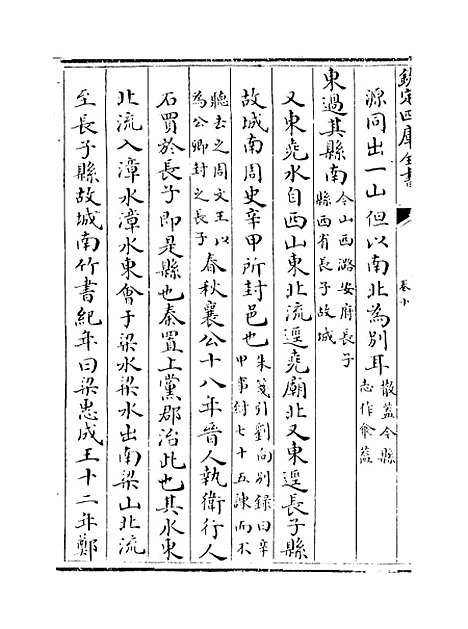 欽定四庫全書
卷十
源同出一山但以南北為別耳散蓋今縣志作繖蓋
東過其縣南今山西潞安府長子縣西有長子故城
又東堯水自西山東北流逕堯廟北又東逕長子縣
故城南周史辛甲所封邑也朱箋引劉向別錄曰辛甲事紂七十五諫而不
聽去之周文王以為公卿封之長子春秋襄公十八年晉人執衛行人
石買於長子即是縣也秦置上黨郡治此也其水東
北流入漳水漳水東會于梁水梁水出南梁山北流
至長子縣故城南竹書紀年曰梁惠成王十二年鄭